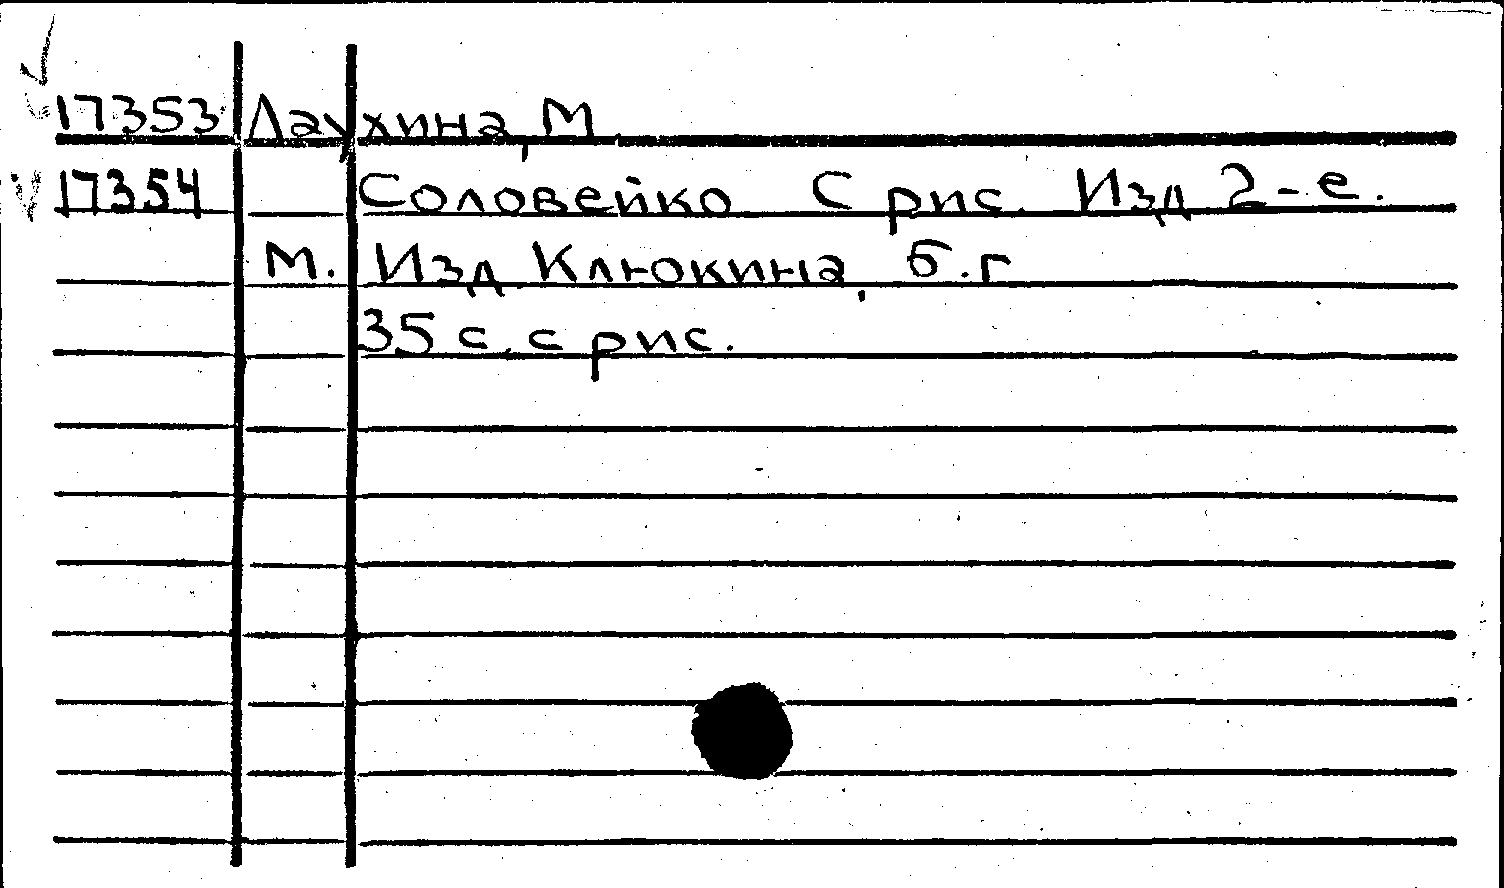 17353 Лаухина, М.
17354 Соловейко С рис. Изд 2-е.
М. Изд Клюкина, б.г
35 с. с рис.